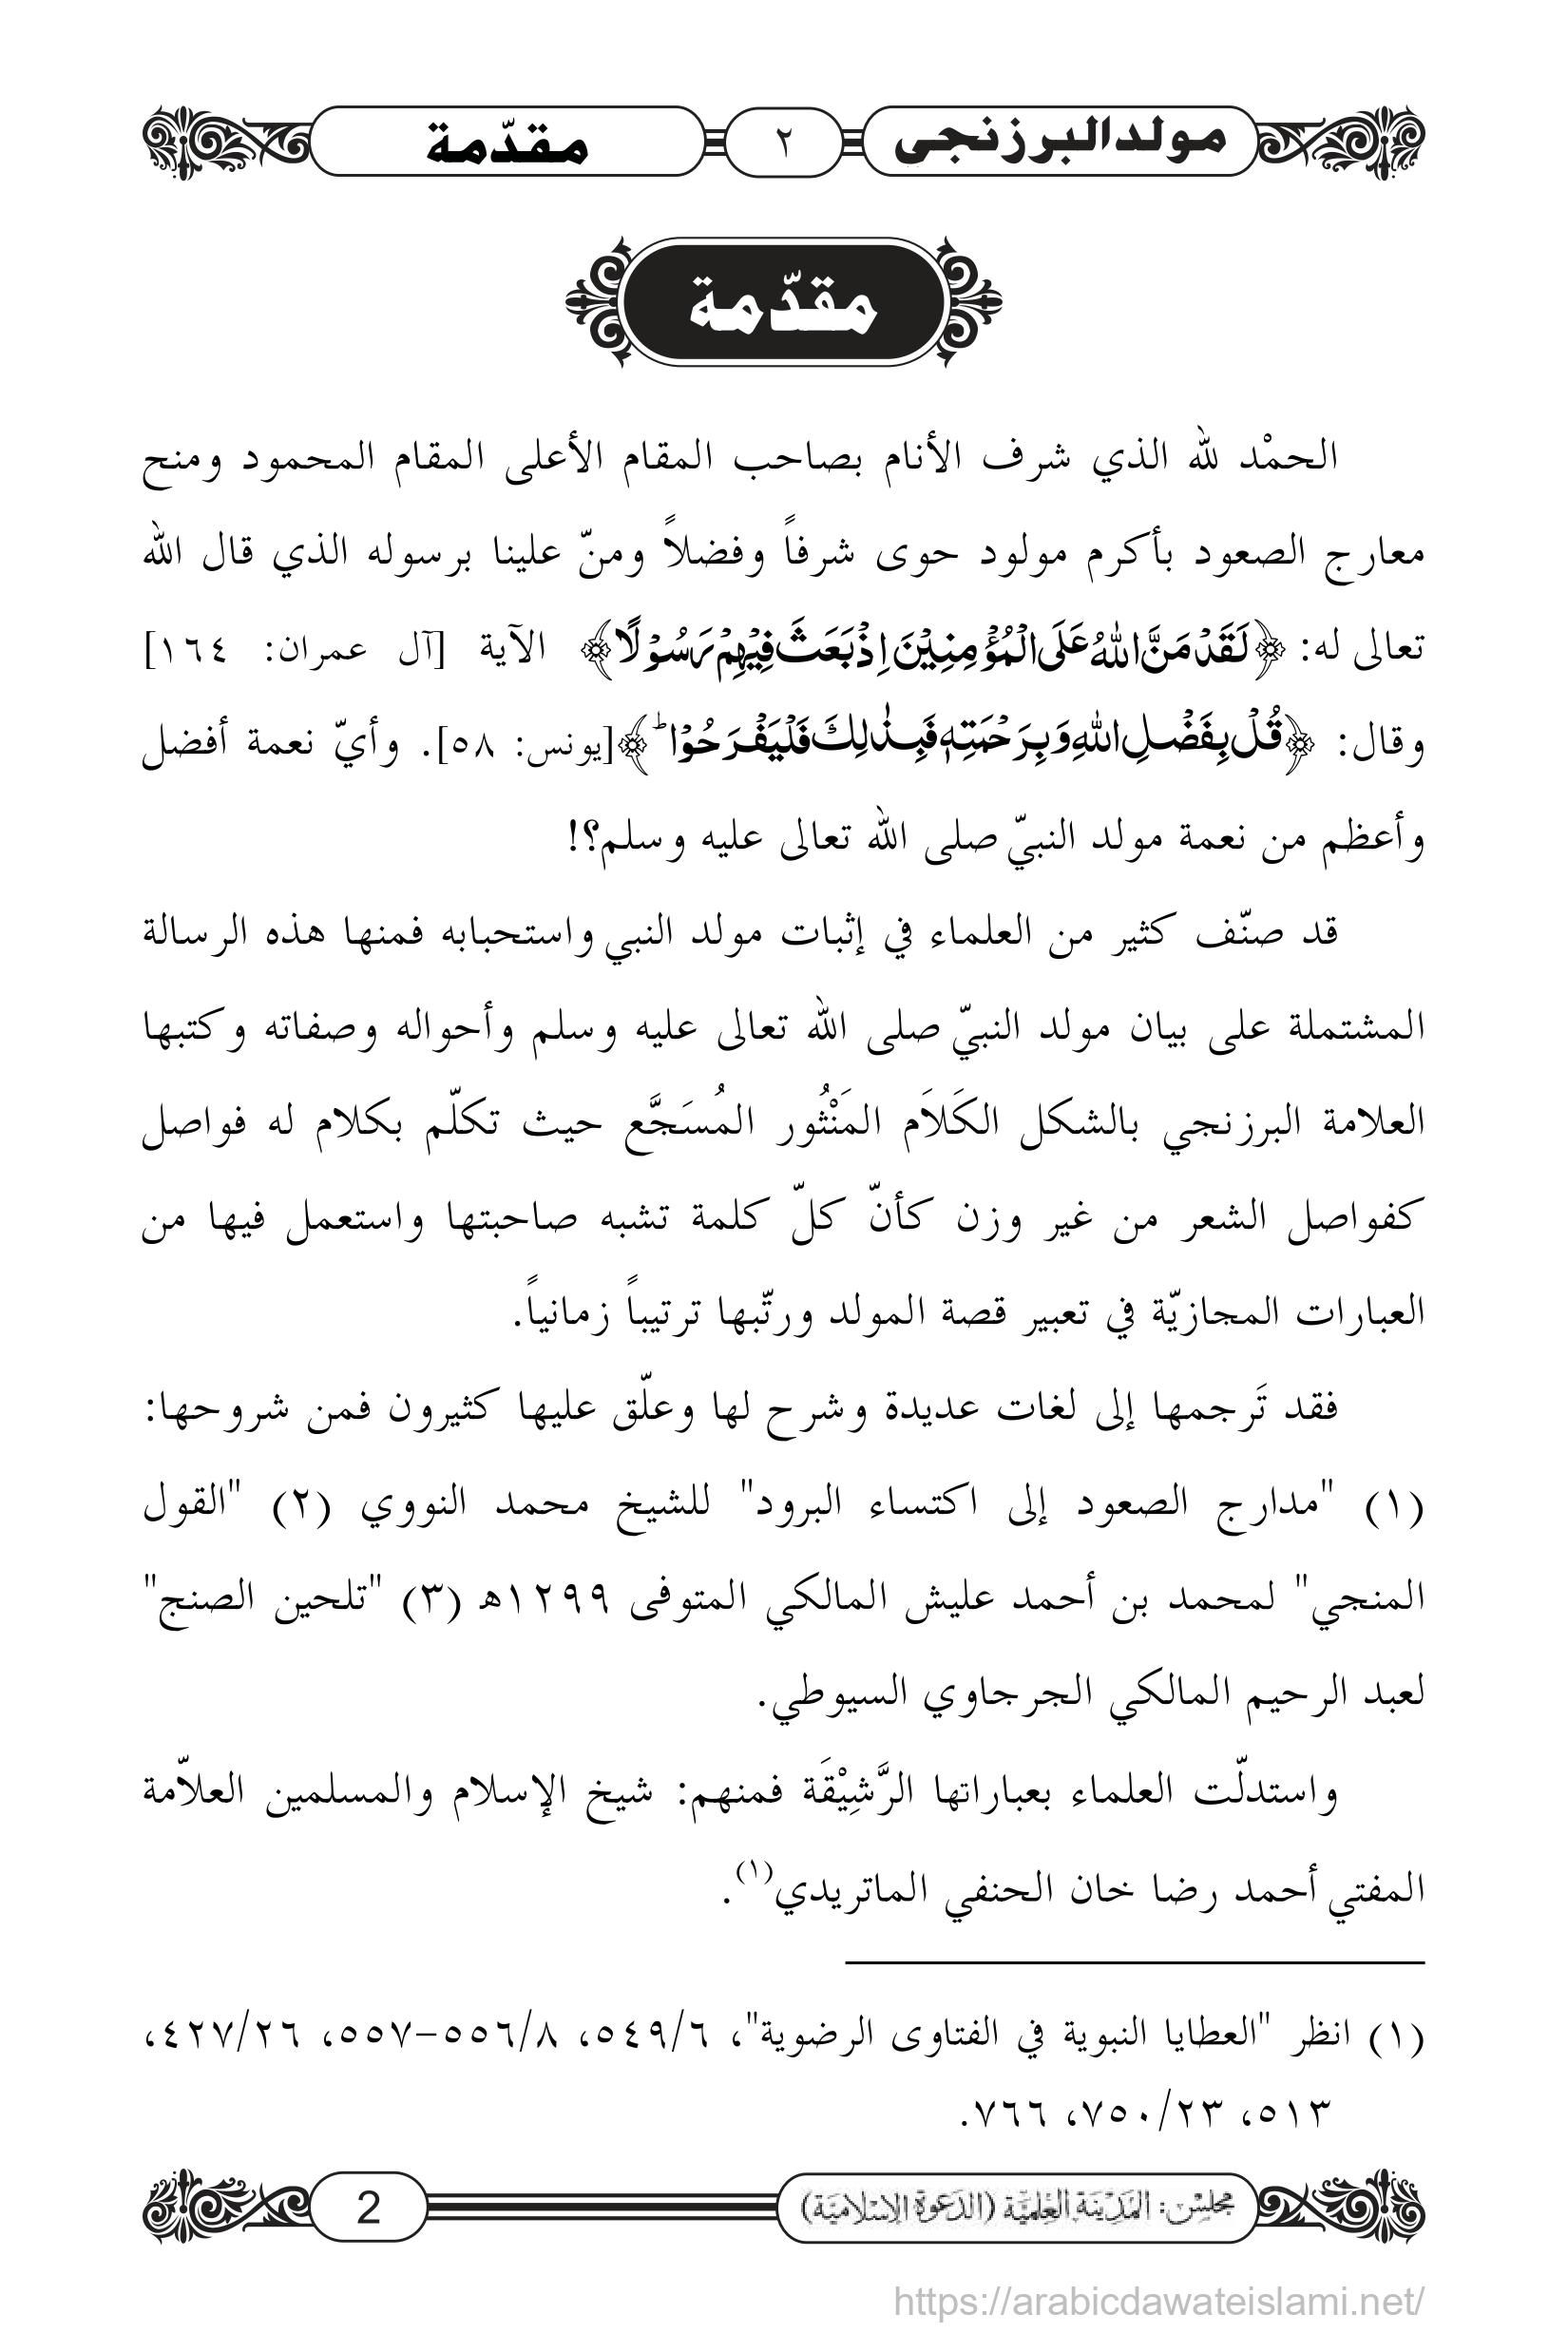 مولد البرزنجي ٢ مقدّمة
مقدّمة
الحمْد لله الذي شرف الأنام بصاحب المقام الأعلى المقام المحمود ومنح
معارج الصعود بأكرم مولود حوى شرفاً وفضلاً ومنّ علينا برسوله الذي قال الله
تعالى له: ﴿لَقَدْ مَنَّ اللهُ عَلَى الْمُؤْمِنِيْنَ اِذْ بَعَثَ فِيْهِمْ رَسُوْلًا﴾ الآية [آل عمران: ١٦٤]
وقال: ﴿قُلْ بِفَضْلِ اللهِ وَبِرَحْمَتِهٖ فَبِذٰلِكَ فَلْيَفْرَحُوْا ؕ﴾[يونس: ٥٨]. وأيّ نعمة أفضل
وأعظم من نعمة مولد النبيّ صلى الله تعالى عليه وسلم؟!
قد صنّف كثير من العلماء في إثبات مولد النبي واستحبابه فمنها هذه الرسالة
المشتملة على بيان مولد النبيّ صلى الله تعالى عليه وسلم وأحواله وصفاته وكتبها
العلامة البرزنجي بالشكل الكَلاَم المَنْثُور المُسَجَّع حيث تكلّم بكلام له فواصل
كفواصل الشعر من غير وزن كأنّ كلّ كلمة تشبه صاحبتها واستعمل فيها من
العبارات المجازيّة في تعبير قصة المولد ورتّبها ترتيباً زمانياً.
فقد تَرجمها إلى لغات عديدة وشرح لها وعلّق عليها كثيرون فمن شروحها:
(١) "مدارج الصعود إلى اكتساء البرود" للشيخ محمد النووي (٢) "القول
المنجي" لمحمد بن أحمد عليش المالكي المتوفى ١٢٩٩ﻫ (٣) "تلحين الصنج"
لعبد الرحيم المالكي الجرجاوي السيوطي.
واستدلّت العلماء بعباراتها الرَّشِيْقَة فمنهم: شيخ الإسلام والمسلمين العلاّمة
المفتي أحمد رضا خان الحنفي الماتريدي(١).
(١) انظر "العطايا النبوية في الفتاوى الرضوية"، ٥٤٩/٦، ٥٥٦/٨-٥٥٧، ٤٢٧/٢٦،
٥١٣، ٧٥٠/٢٣، ٧٦٦.
مجلس: المَدِيْنَة العِلْمِيَّة (الدَعوة الإسْلاميَّة) 2
https://arabicdawateislami.net/